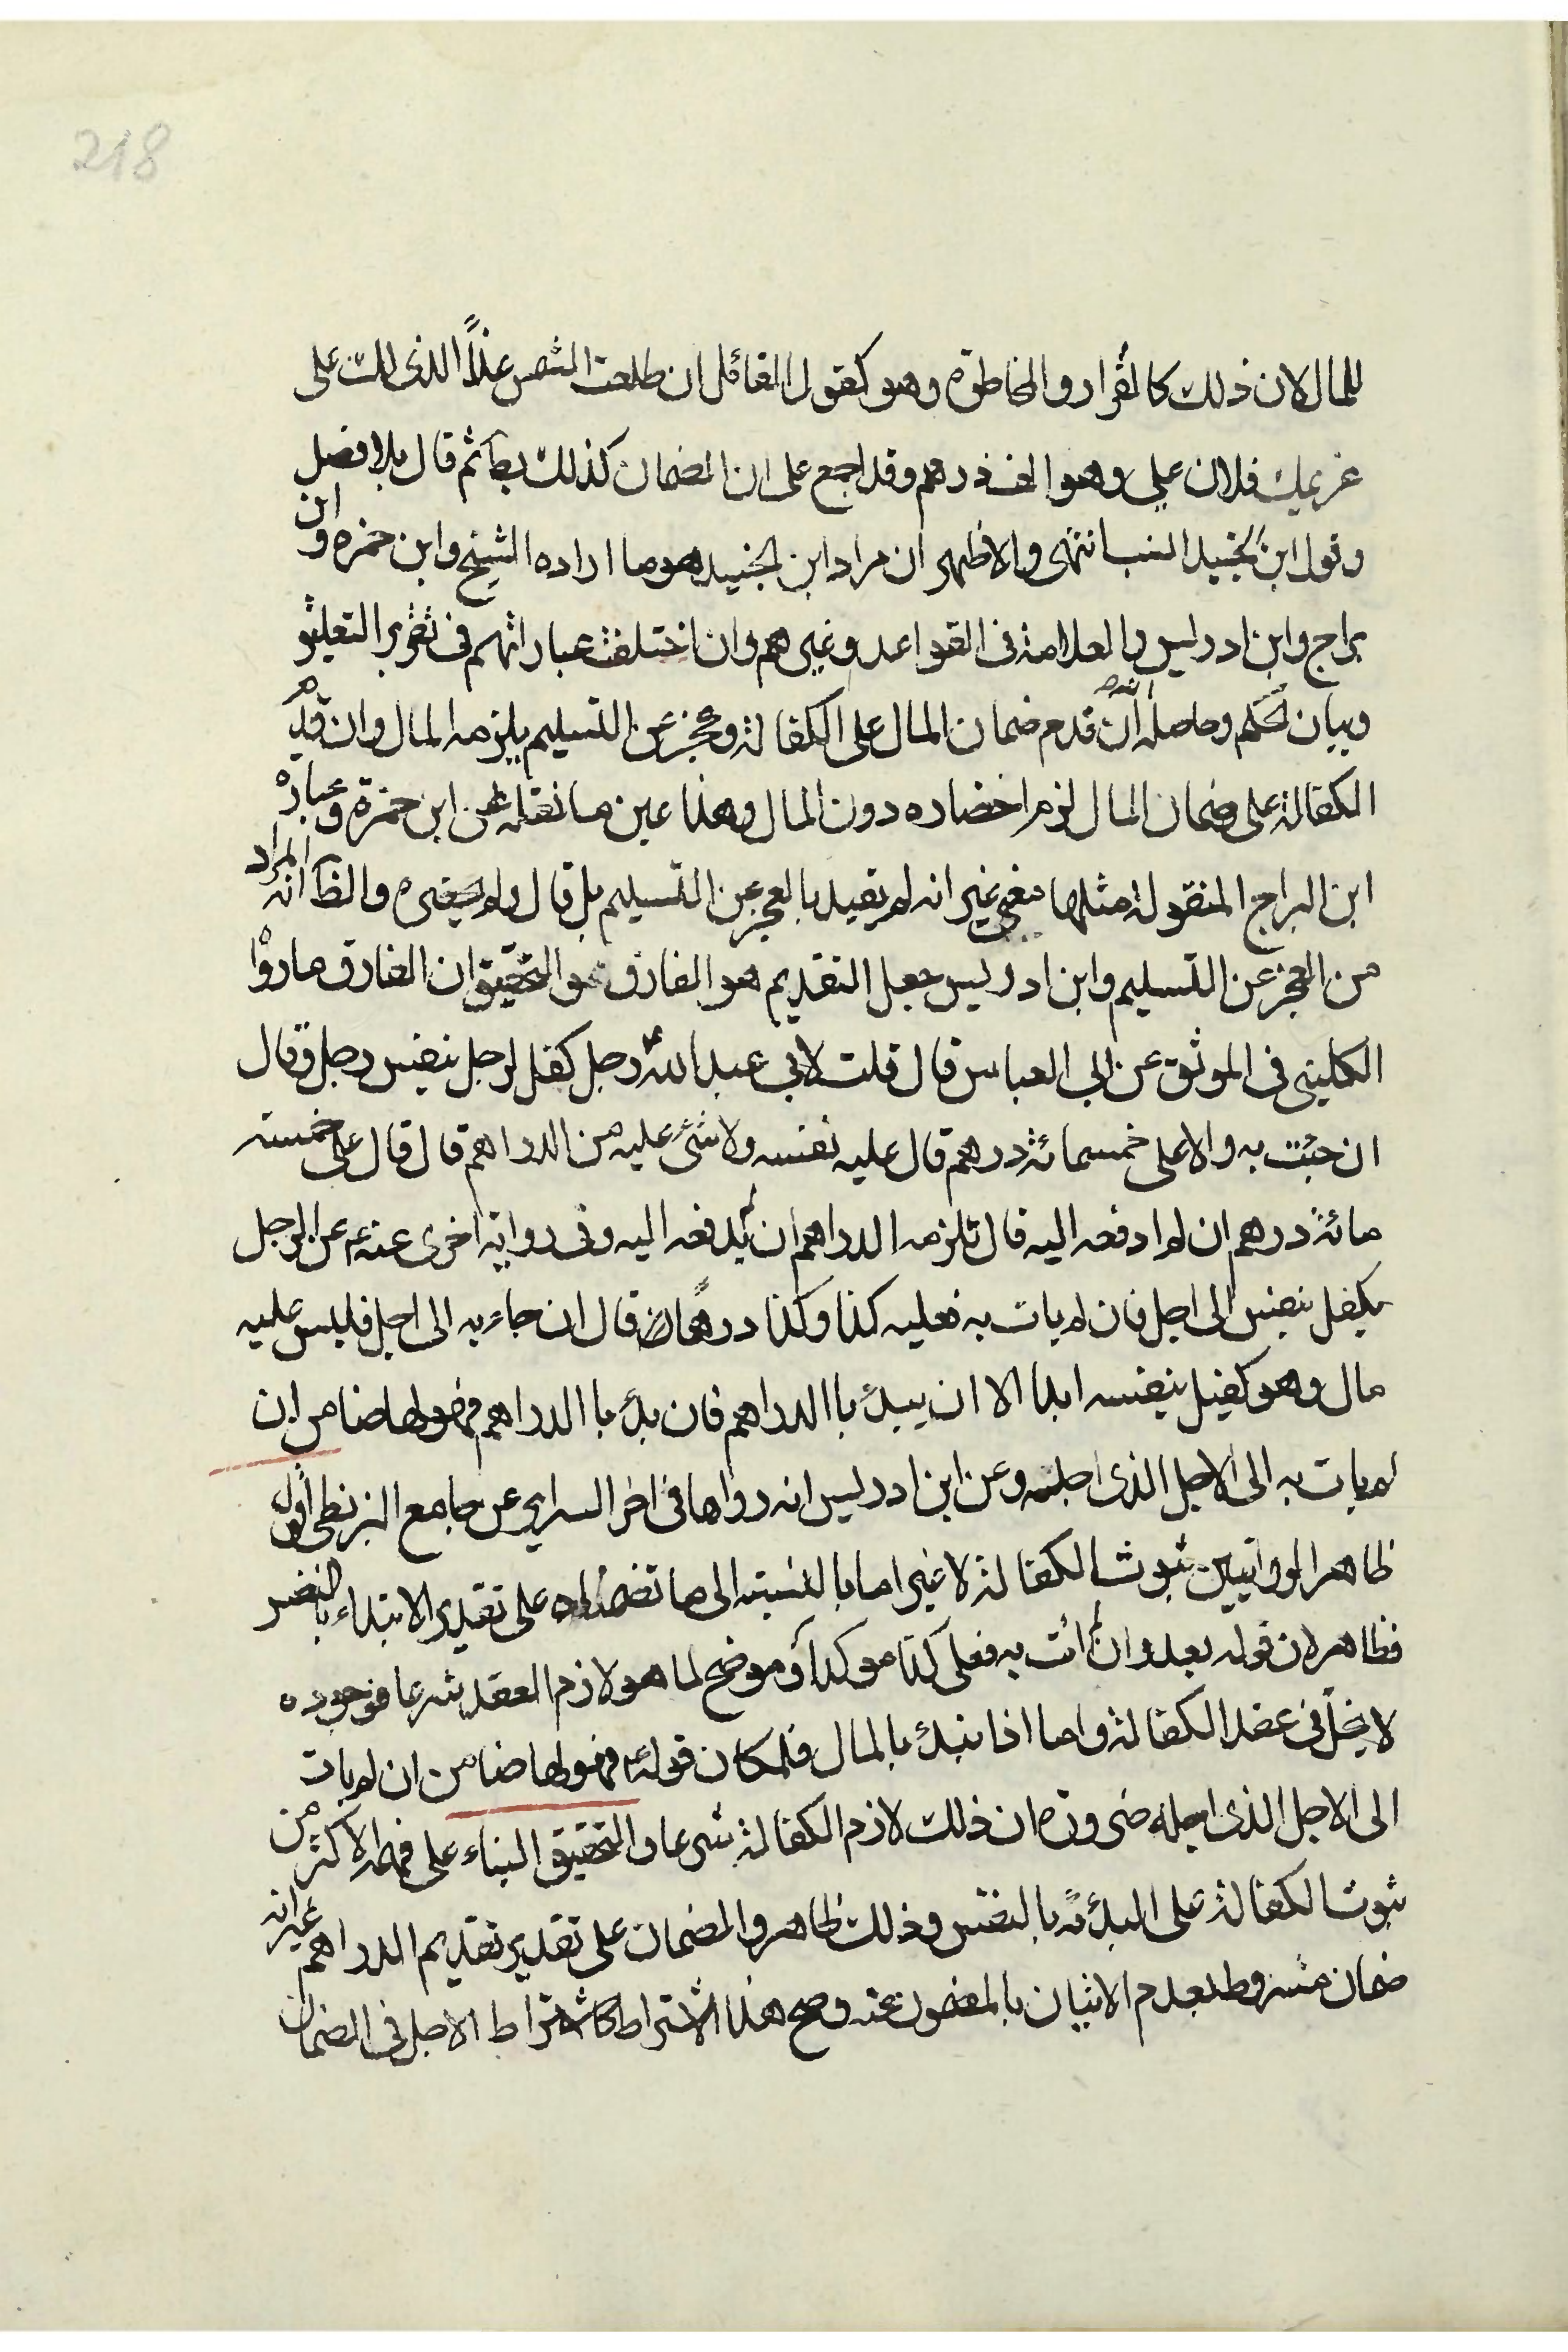 218
للمال لان ذلك كالقرار والمخاطرة وهو كقول القائل ان طلعت الشمس غداً الذى لك على
غريمك فلان علي وهو الف درهم وقد اجمع على ان الضمان كذلك بط ثم قال بلا فصل
وقول ابن الجنيد انسب انتهى والاظهر ان مراد ابن الجنيد هو ما اراده الشيخ وابن حمزه وابن
براج وابن ادريس والعلامة فى القواعد وغيرهم وان اختلفت عباراتهم فى تقرير التعليق
وبيان الحكم وحاصله انه ان قدم ضمان المال على الكفالة وعجز عن التسليم يلزمه المال وان قدم
الكفالة على ضمان المال لزم احضاره دون المال وهذا عين ما نقله عن ابن حمزة وعبارة
ابن البراج المنقولة مثلها معنى غير انه لم يقيد بالعجز عن التسليم بل قال ولم يحضره والظ انه المراد
من العجز عن التسليم وابن ادريس جعل التقديم هو الفارق والتحقيق ان الفارق ما رواه
الكلينى فى الموثق عن ابى العباس قال قلت لابي عبد الله ع رجل كفل لرجل بنفس رجل وقال
ان جئت به والا على خمسمائة درهم قال عليه نفسه ولا شئ عليه من الدراهم قال قال على خمسة
مائة درهم ان لم ادفعه اليه قال تلزمه الدراهم ان لم يدفعه اليه وفى رواية اخرى عنه ع عن الرجل
يكفل بنفس الى اجل فان لم يات به فعليه كذا وكذا درهما قال ان جاء به الى اجل فليس عليه
مال وهو كفيل بنفسه ابدا الا ان يبدأ باالدراهم فان بدأ باالدراهم فهو لها ضامن ان
لم يات به الى الاجل الذى اجله وعن ابن ادريس انه رواها فى اخر السراير عن جامع البزنطى اقول
ظاهر الروايتين ثبوت الكفالة لا غير اما بالنسبة الى ما تضمنتاه على تقدير الابتداء بالنفس
فظاهر لان قوله بعد وان لم ائت به فعلى كذا موكدا وموضح لما هو لازم العقد شرعا فوجوده
لا يخل فى عقد الكفالة واما اذا بتدأ بالمال فلمكان قوله ع فهو لها ضامن ان لم يات
الى الاجل الذى اجله ضرورة ان ذلك لازم الكفالة شرعا والتحقيق البناء على فهم الاكثر من
ثبوت الكفالة على البدئة بالنفس وذلك ظاهر والضمان على تقدير تقديم الدراهم غير انه
ضمان مشروط بعدم الاتيان بالمضمون عنه وصح هذا الاشتراط كاشتراط الاجل فى الضمان